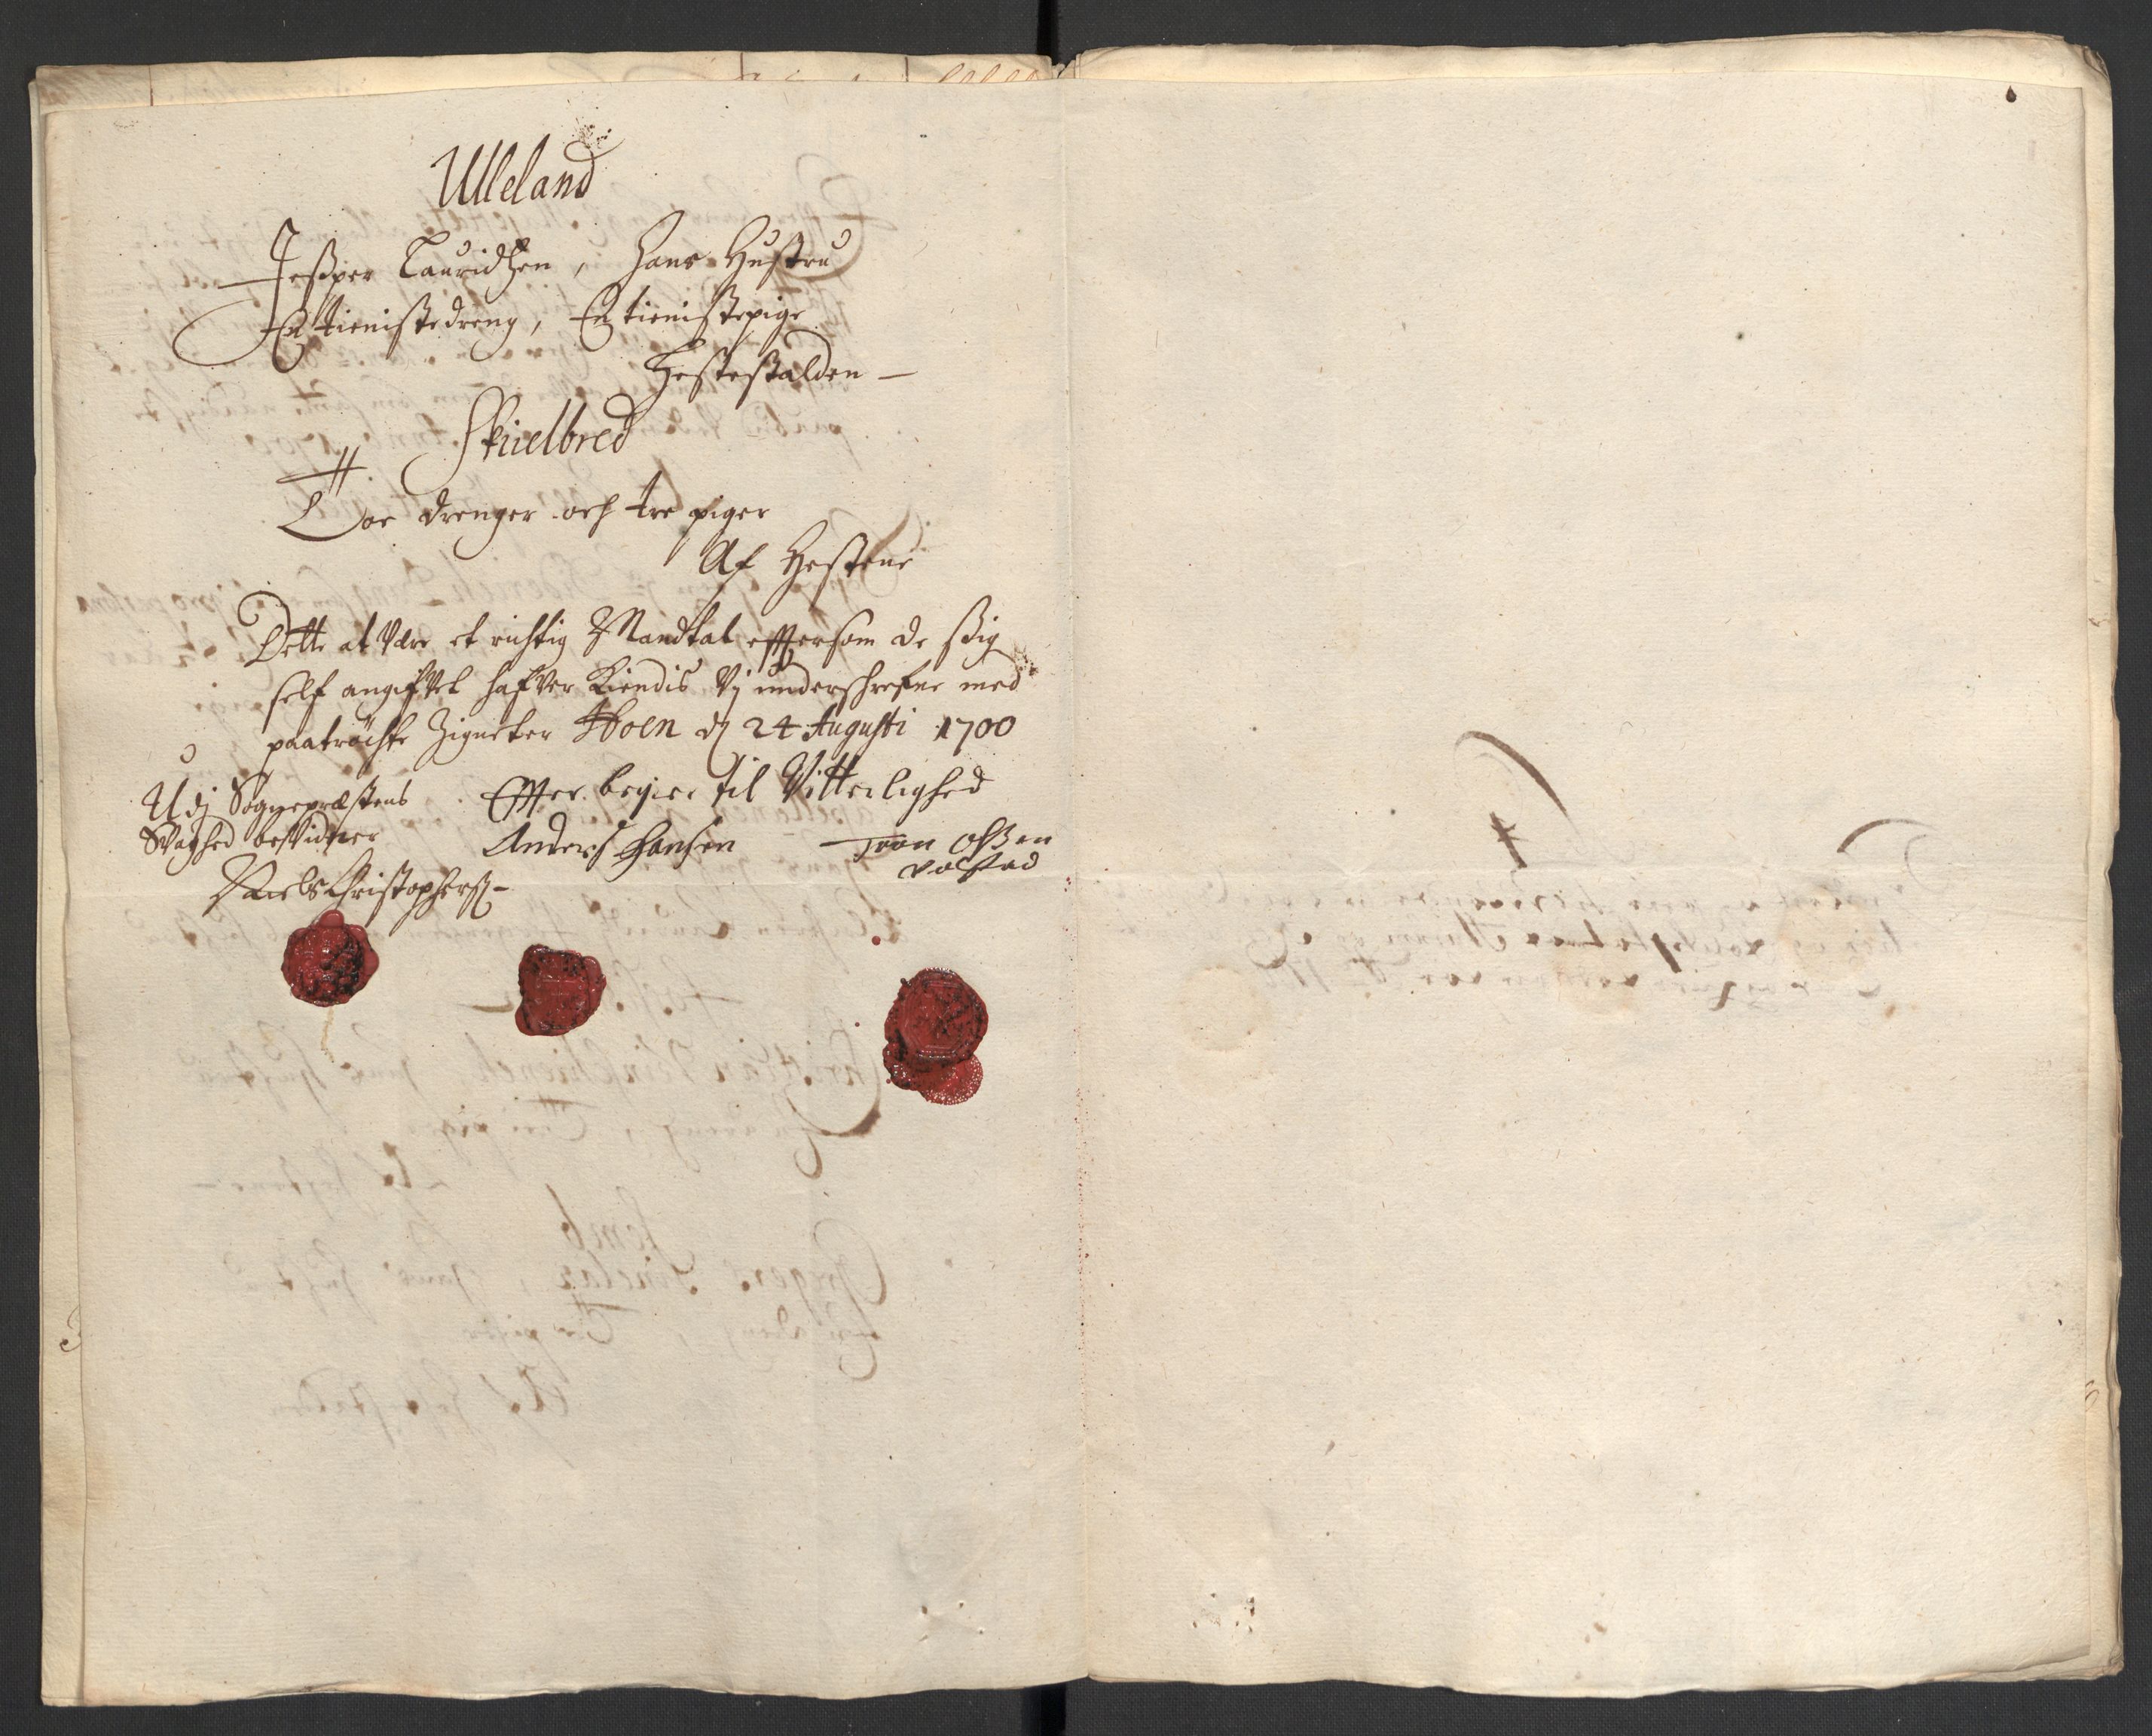 Ulleland
Jesper Lauridtzen, Hans Hustru
En tienistedreng, En tienistepige
Hestestalden –
Skiielbred
Toe drenger och tre piger
Af Hestene
Dette at Være et richtig Mandtal effter som de sig
self angifvet hafver Kiendis Vj underschrefne med
paatröchte Zigneter Hoen dj 24 Augusti 1700
Udj Sogneprestens
Svaghed bevidner
Niels Christophers:
Effter begier til Vitterlighed
Anders Hansen
Tron olssen
volstad